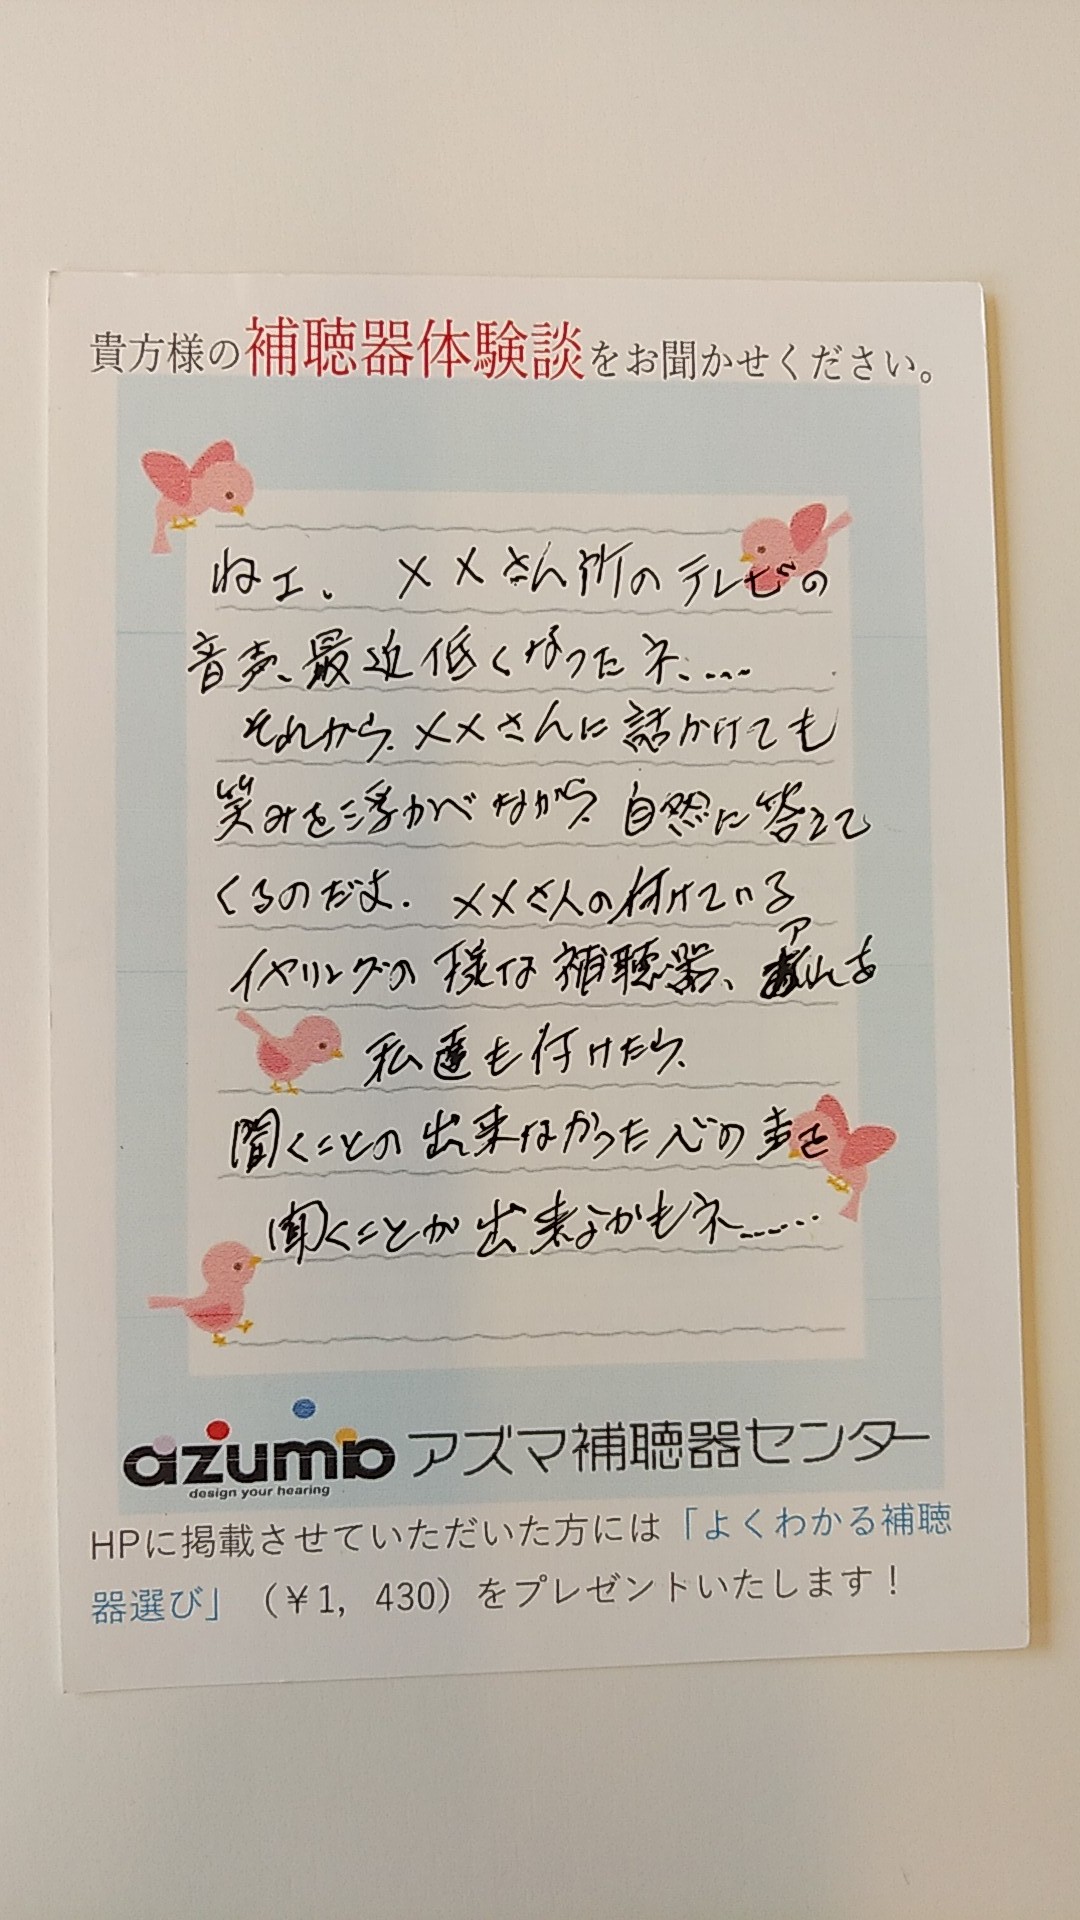 貴方様の補聴器体験談をお聞かせください。
ねエ、××さん所のテレビの
音声、最近低くなったネ、....
それから、××さんに話かけても
笑みを浮かべながら、自然に答えて
くるのだよ。××さんの付けている
イヤリングの様な補聴器、アれを
私達も付けたら、
聞くことの出来なかった心の声を
聞くことが出来るかもネ......
azuma アズマ補聴器センター
design your hearing
HPに掲載させていただいた方には「よくわかる補聴
器選び」（￥1，430）をプレゼントいたします！